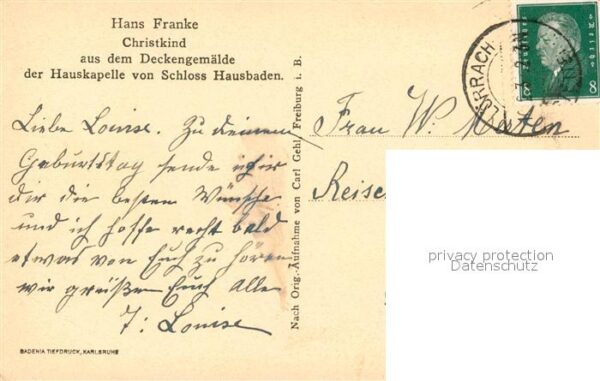 Hans Franke
Christkind
aus dem Deckengemälde
der Hauskapelle von Schloss Hausbaden.
Liebe Louise. Zu deinem
Geburtstag sende ich dir
dir die besten Wünsche
und ich hoffe recht bald
etwas von Euch zu hören
wir grüßen Euch Alle
Louise
BADENIA TIEFDRUCK, KARLSRUHE
Nach Orig.-Aufnahme von Carl Gehl, Freiburg i. B.
LÖRRACH
8 8
Frau W.
Reise
privacy protection
Datenschutz